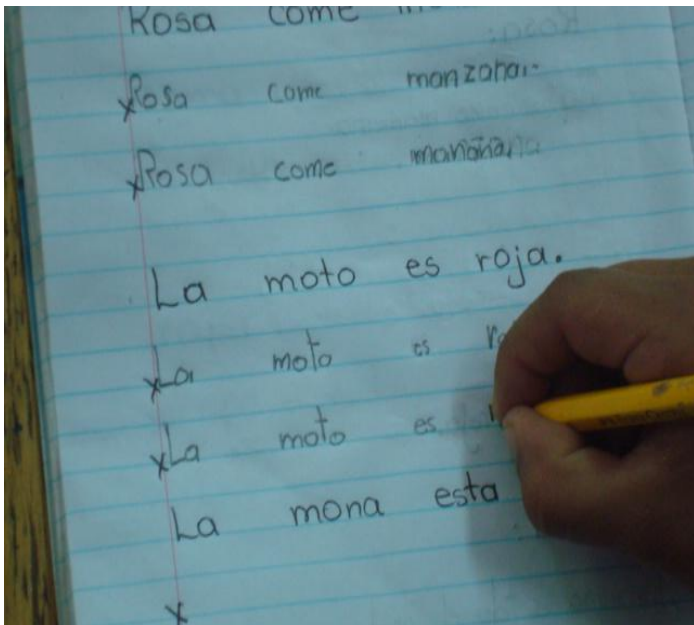 Rosa come
xRosa come manzana.
xRosa come
La moto es roja.
xLa moto es
xLa moto es
La mona esta
x